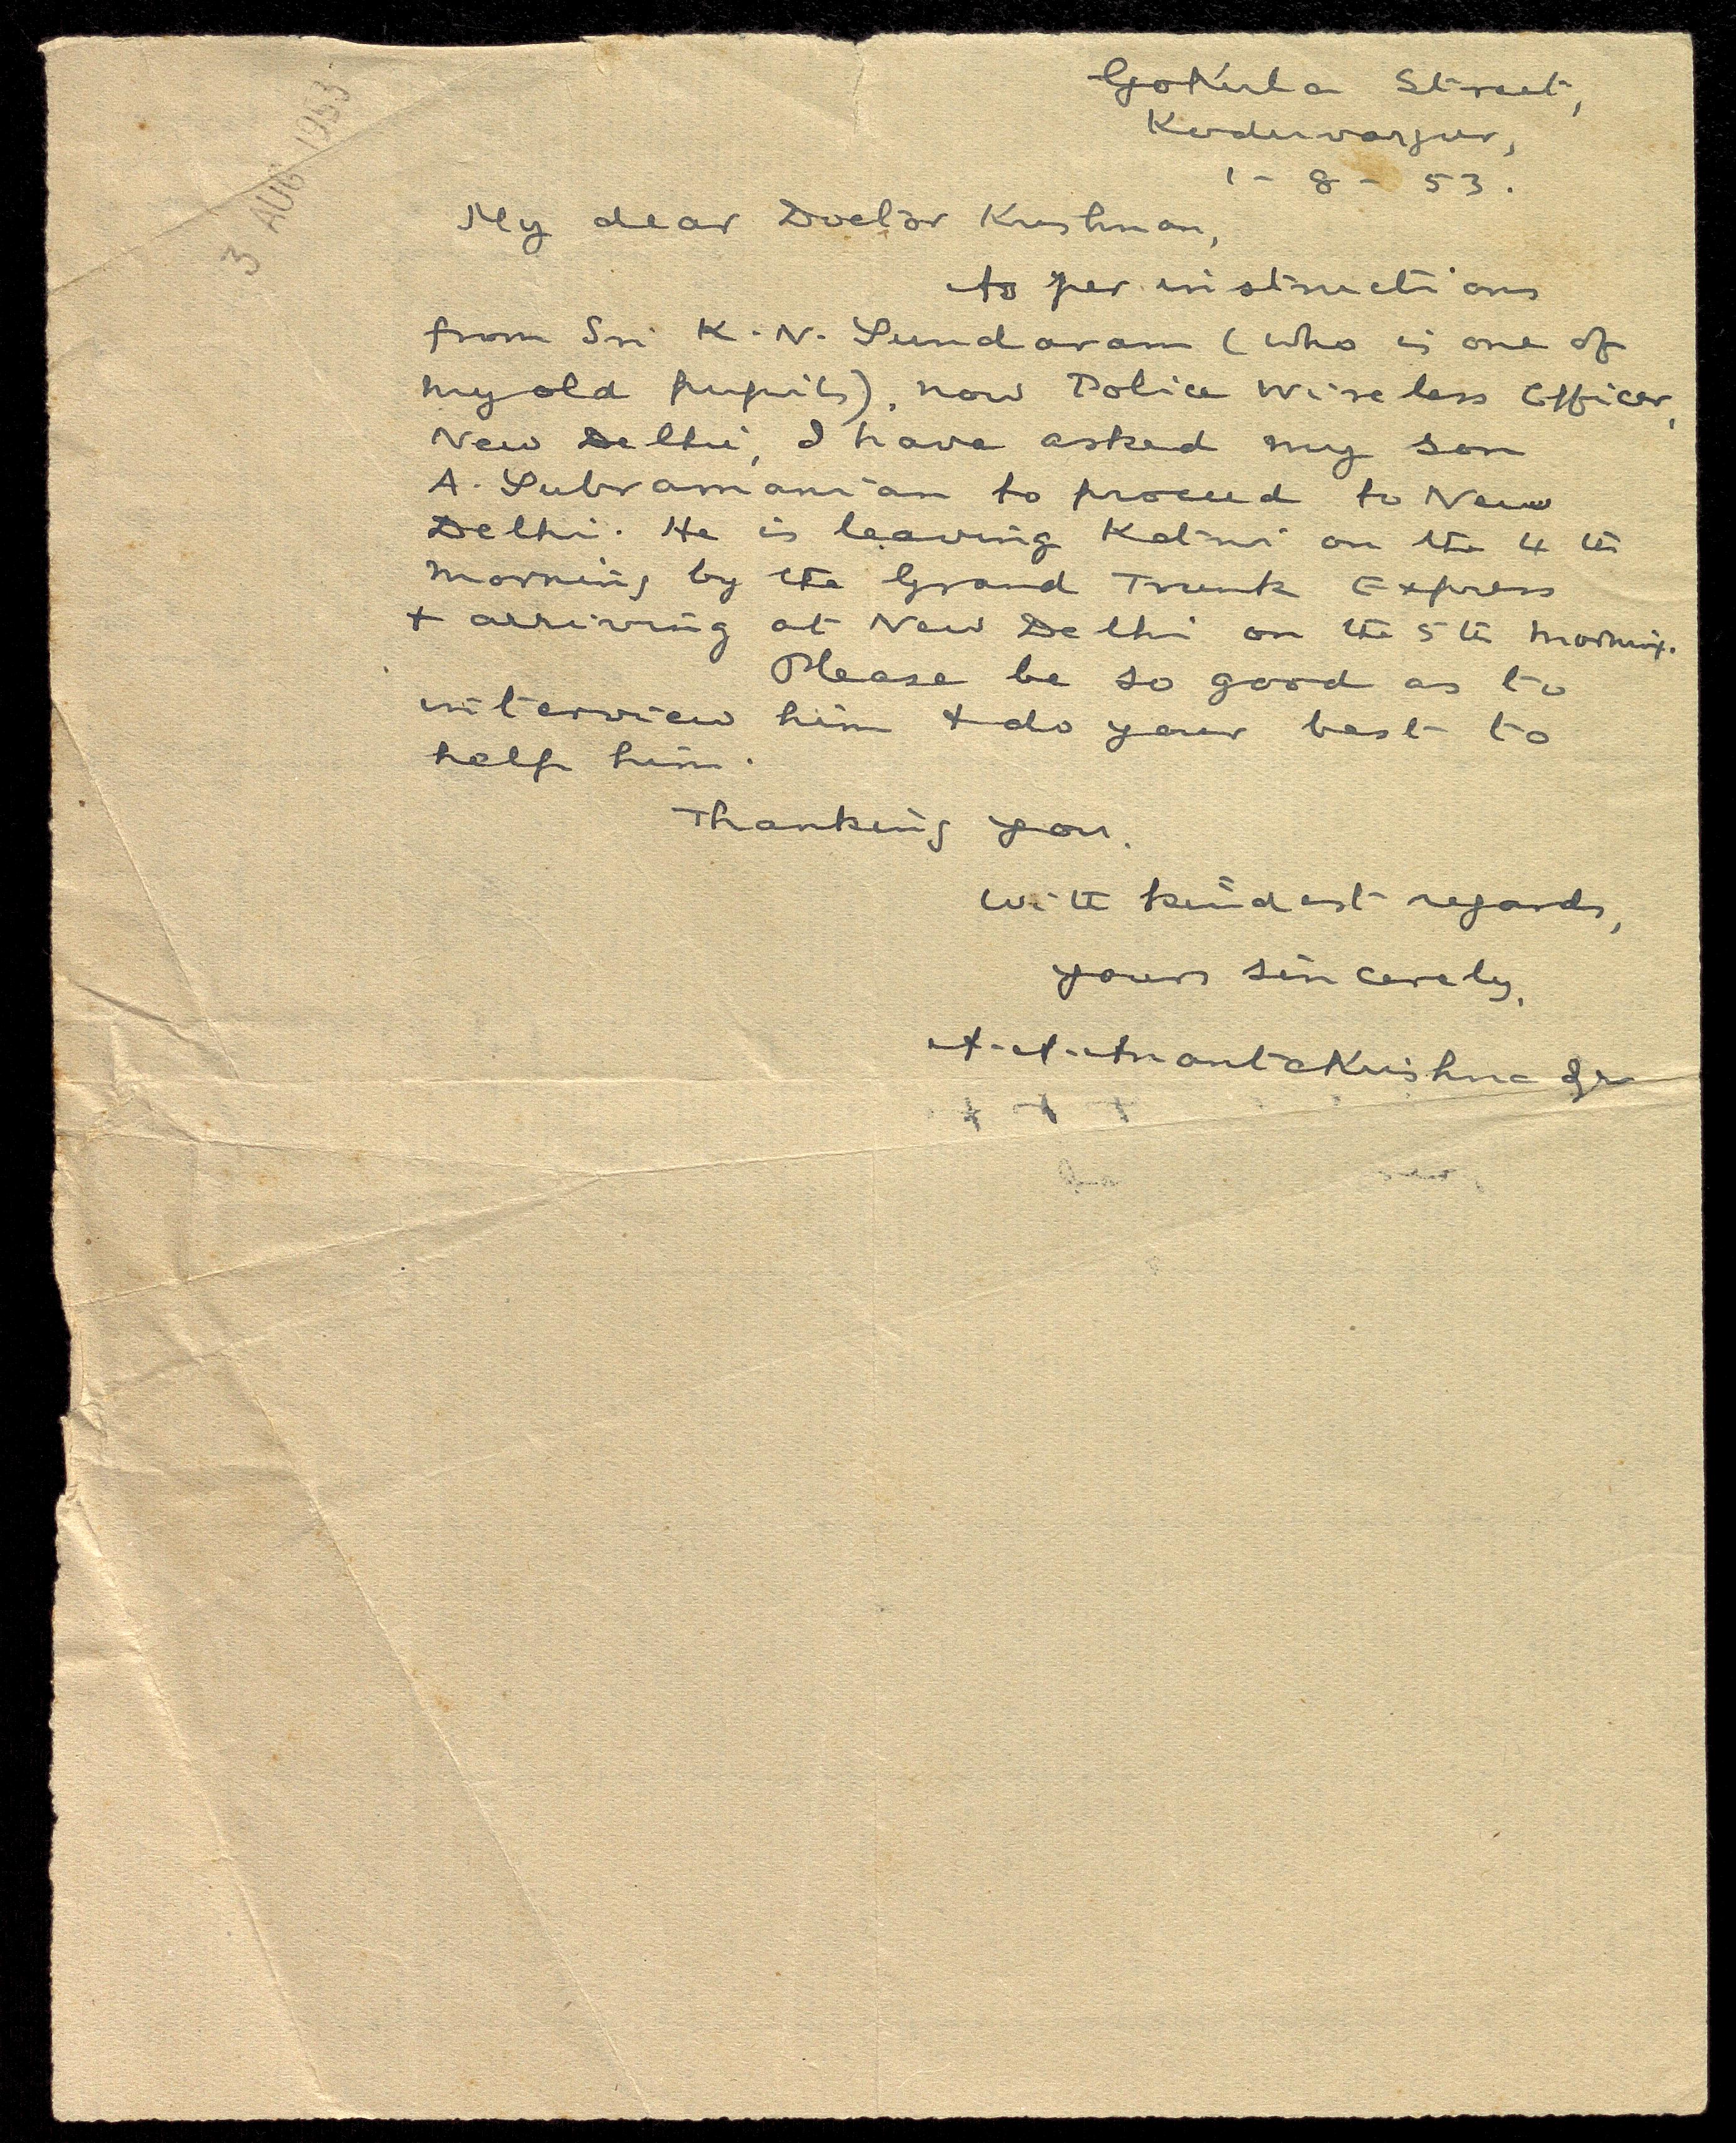 3 AUG 1953
Gokula Street,
Koduvayur,
1 - 8 - 53.
My dear Doctor Krishnan,
As per instructions
from Sri K. N. Sundaram (who is one of
my old pupils), now Police Wireless Officer,
New Delhi, I have asked my son
A. Subramanian to proceed to New
Delhi. He is leaving Katni on the 4th
morning by the Grand Trunk Express
+ arriving at New Delhi on the 5th morning.
Please be so good as to
interview him + do your best to
help him.
Thanking you,
With kindest regards,
yours sincerely,
A. A. Ananta Krishna Iyer